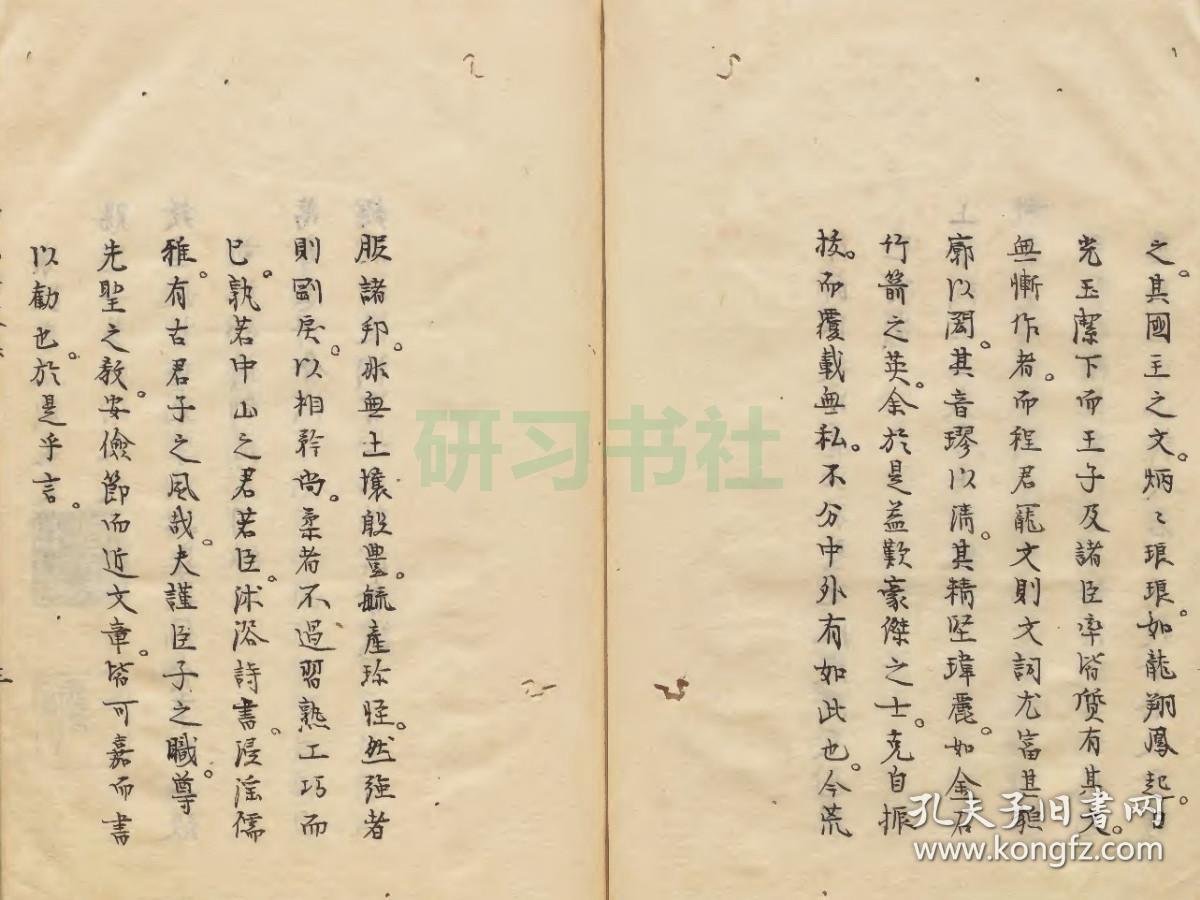 之。其國主之文。炳〻琅琅。如龍翔鳳起。日
光玉潔下而王子及諸臣率皆質有其文。
無慚作者。而程君寵文則文詞尤富其體
廓以閎。其音璆以清。其精堅瑋麗。如金石
竹箭之英。余於是益歎豪傑之士。克自振
拔。而覆載無私。不分中外有如此也。今荒
服諸邦。亦無土壤殷豐。毓產珍怪。然強者
則剛戾。以相矜尚。柔者不過習熟工巧而
已。孰若中山之君若臣。沐浴詩書。浸淫儒
雅。有古君子之風哉。夫謹臣子之職。尊
先聖之教。安儉節而近文章。皆可嘉而書
以勸也。於是乎言。
研习书社
孔夫子旧書网
www.kongfz.com